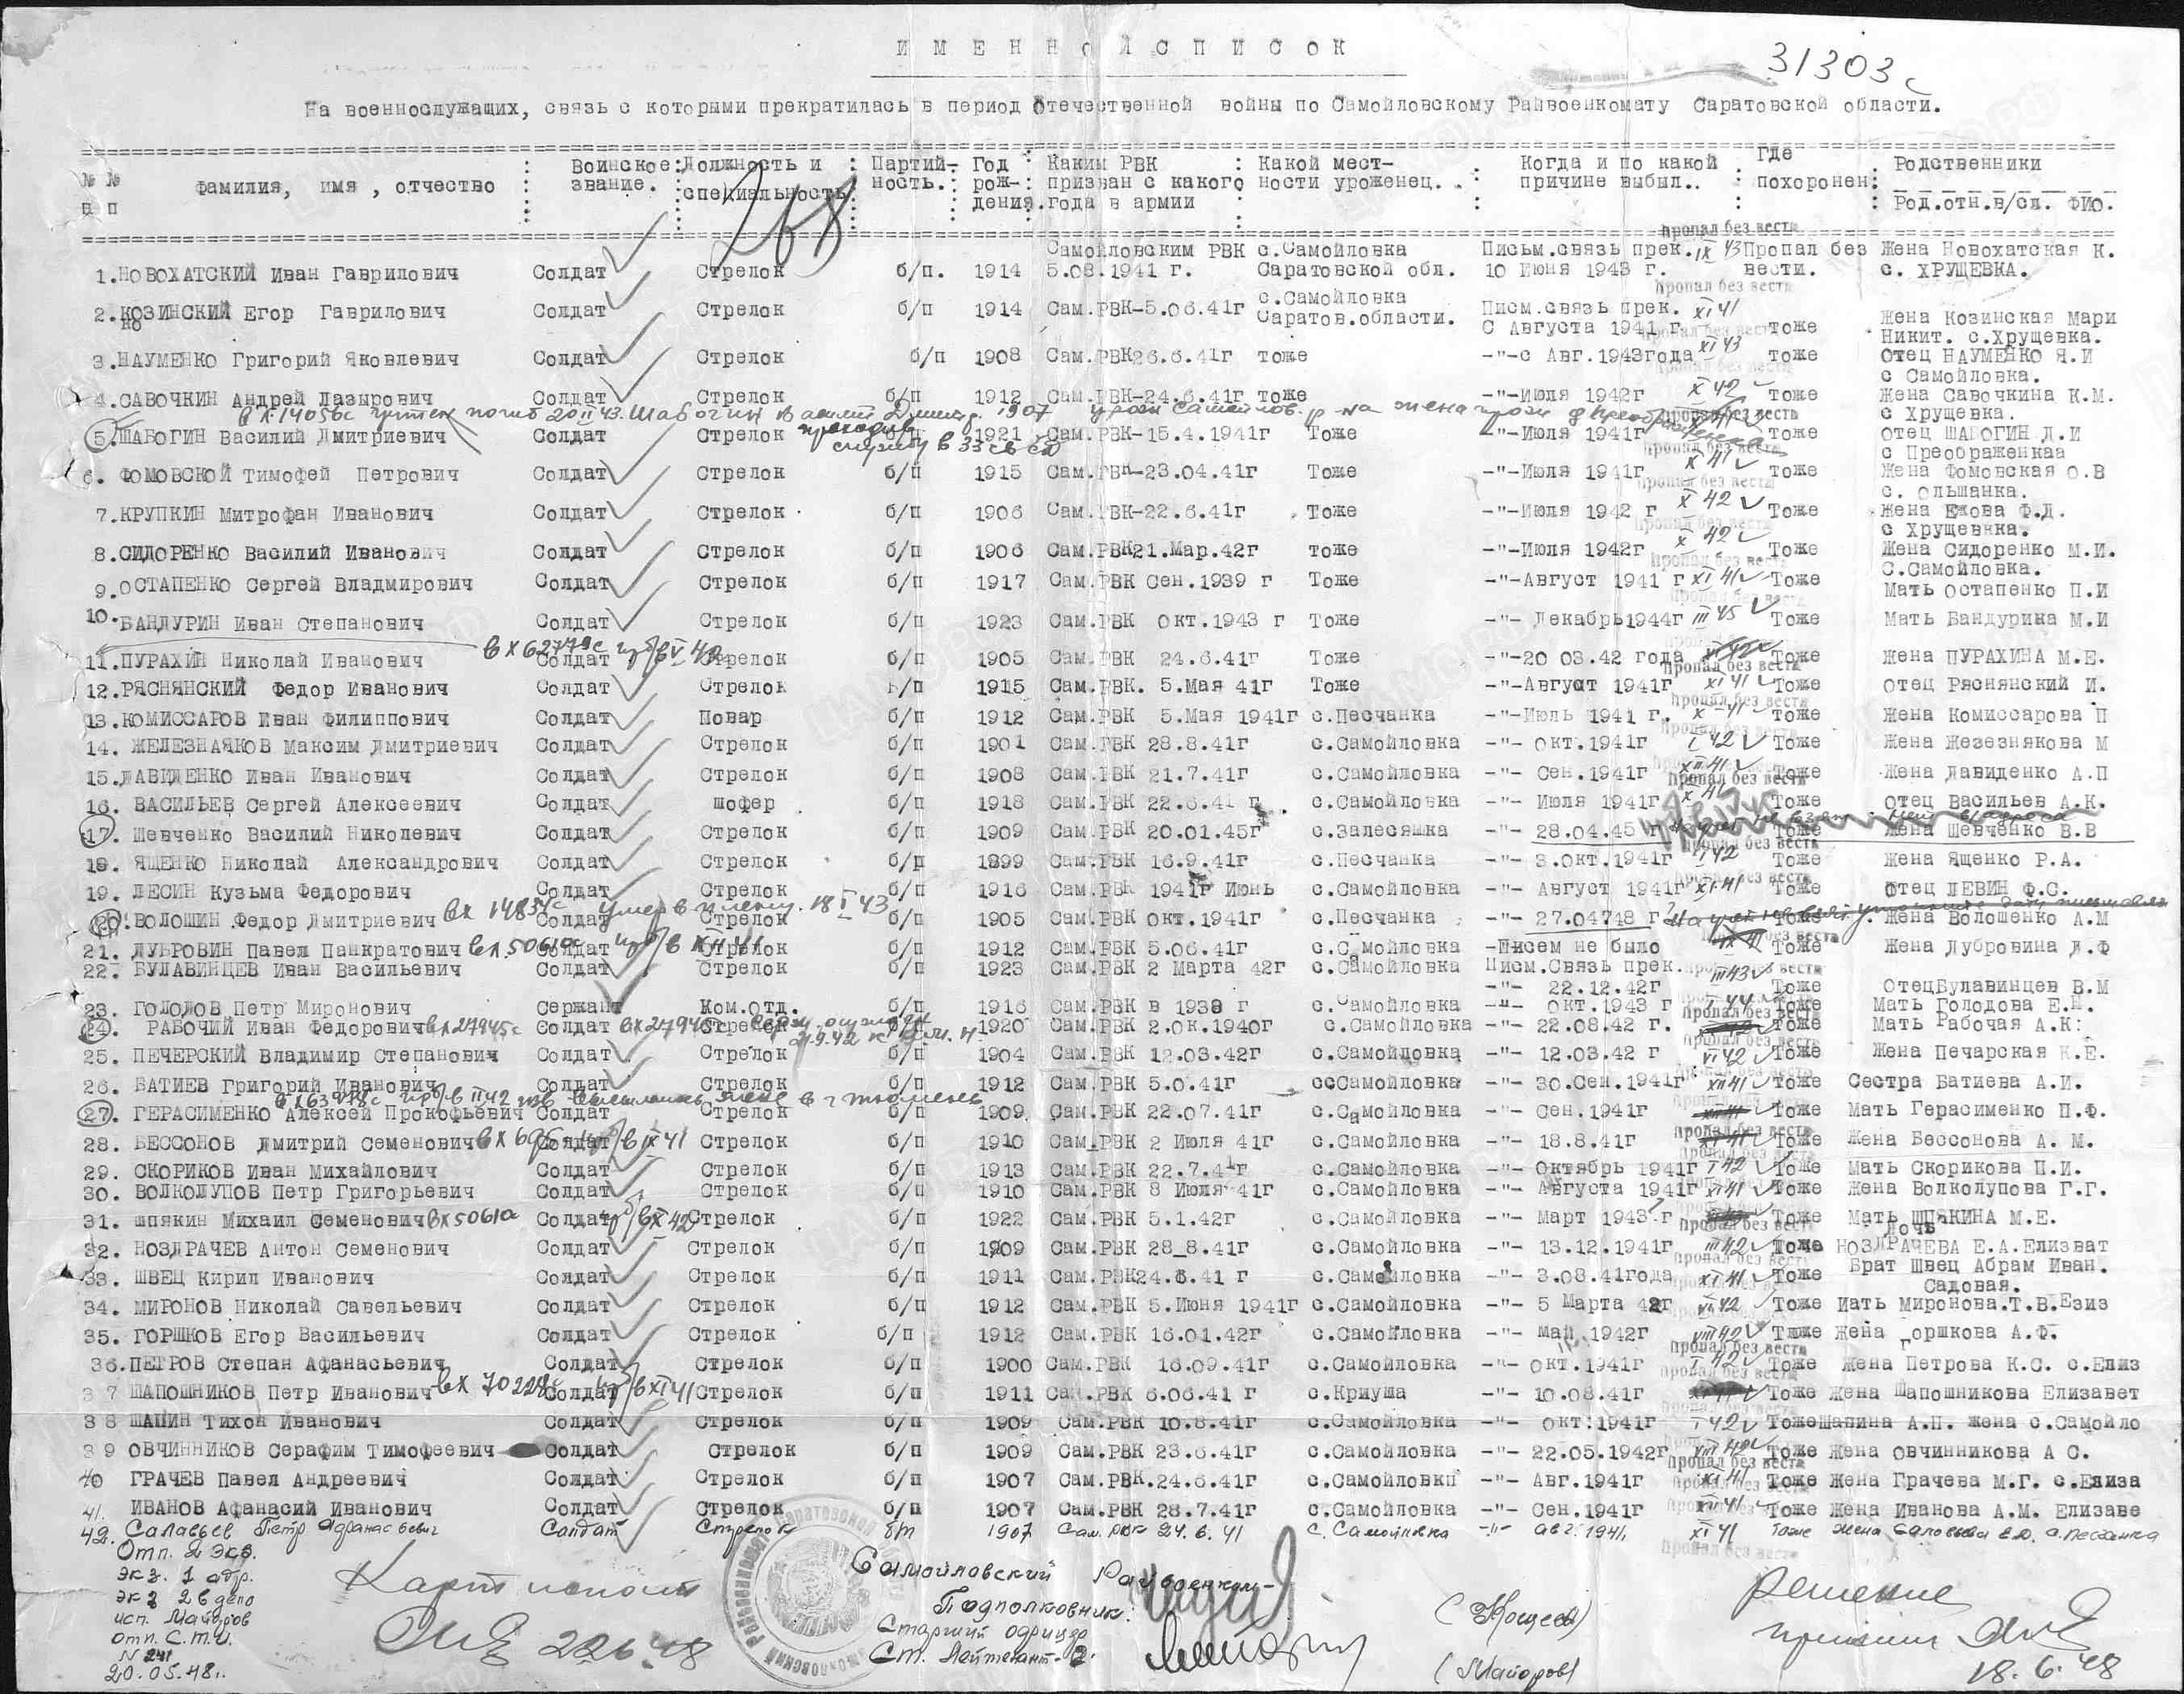 ИМЕННОЙ СПИСОК
31303с
На военнослужащих, связь с которыми прекратилась в период Отечественной войны по Самойловскому Райвоенкомату Саратовской области.
№ № п п : Фамилия, имя , отчество : Воинское звание. : Должность и специальность : Партийность. : Год рождения. : Каким РВК призван с какого года в армии : Какой местности уроженец. : Когда и по какой причине выбыл.. : Где похоронен : Родственники Род.отн.в/сл. ФИО.
268
Пропал без вести
Самойловским РВК с.Самойловка Письм.связь прек. IX 43 Пропал без Жена Новохатская К.
1.НОВОХАТСКИЙ Иван Гаврилович Солдат Стрелок б/п. 1914 5.08.1941 г. Саратовской обл. 10 Июня 1943 г. вести. с. ХРУЩЕВКА.
2.КОЗИНСКИЙ Егор Гаврилович Солдат Стрелок б/п 1914 Сам.РВК-5.06.41г с.Самойловка Саратов.области. Писм.связь прек. С Августа 1941 г XI 41 тоже Жена Козинская Мари Никит. с.Хрущевка.
3.НАУМЕНКО Григорий Яковлевич Солдат Стрелок б/п 1908 Сам.РВК26.6.41г тоже -"-с Авг.1943года XI 43 тоже Отец НАУМЕНКО Я.И с Самойловка.
4.САВОЧКИН Андрей Лазырович Солдат Стрелок б/п 1912 Сам.РВК-24.6.41г тоже -"-Июля 1942г X 42 тоже Жена Савочкина К.М. с Хрущевка.
вх.14056с погиб 20 II 43 Шабогин Василий Дмитр. 1907
служил в 33 св сд
5.ШАБОГИН Василий Дмитриевич Солдат Стрелок б/п 1921 Сам.РВК-15.4.1941г Тоже -"-Июля 1941г тоже Отец ШАБОГИН Д.И с Преображенкаа
6. ФОМОВСКОЙ Тимофей Петрович Солдат Стрелок б/п 1915 Сам.РВк-23.04.41г Тоже -"-Июля 1941г X 41 тоже Жена Фомовская О.В с. Ольшанка.
7.КРУПКИН Митрофан Иванович Солдат Стрелок б/п 1906 Сам.РВК-22.6.41г Тоже -"-Июля 1942 г X 42 Тоже Жена Ежова Ф.Д. с Хрущевнка.
8.СИДОРЕНКО Василий Иванович Солдат Стрелок б/п 1906 Сам.РВК21.Мар.42г тоже -"-Июля 1942г X 42 Тоже Жена Сидоренко М.И. С.Самойловка.
9.ОСТАПЕНКО Сергей Владмирович Солдат Стрелок б/п 1917 Сам.РВК Сен.1939 г Тоже -"-Август 1941 г XI 41 Тоже Мать Остапенко П.И
10.БАНДУРИН Иван Степанович Солдат Стрелок б/п 1923 Сам.РВК Окт.1943 г Тоже -"- Декабрь1944г III 45 Тоже Мать Бандурина М.И
11.ПУРАХИН Николай Иванович вх 62779с Солдат Стрелок б/п 1905 Сам.РВК 24.6.41г Тоже -"-20 03.42 года Тоже Жена ПУРАХИНА М.Е.
12.РЯСНЯНСКИЙ Федор Иванович Солдат Стрелок б/п 1915 Сам.РВК. 5.Мая 41г Тоже -"-Август 1941г XI 41 Тоже Отец Ряснянский И.
13.КОМИССАРОВ Иван Филиппович Солдат Повар б/п 1912 Сам.РВК 5.Мая 1941г с.Песчанка -"-Июль 1941 г. X 41 тоже Жена Комиссарова П
14. ЖЕЛЕЗНАЯКОВ Максим Дмитриевич Солдат Стрелок б/п 1901 Сам.РВК 28.8.41г с.Самойловка -"- Окт.1941г I 42 Тоже Жена Жезезнякова М
15.ДАВИДЕНКО Иван Иванович Солдат Стрелок б/п 1908 Сам.РВК 21.7.41г с.Самойловка -"- Сен.1941г XII 41 Тоже Жена Давиденко А.П
16. ВАСИЛЬЕВ Сергей Алексеевич Солдат шофер б/п 1918 Сам.РВК 22.6.41 г с.Самойловка -"- Июля 1941г X 41 Тоже Отец Васильев А.К.
17. Шевченко Василий Николевич Солдат Стрелок б/п 1909 Сам.РВК 20.01.45г с.Залесяшка -"- 28.04.45 г Тоже Жена Шевченко В.В
18. ЯЩЕНКО Николай Александрович Солдат Стрелок б/р 1899 Сам.РВК 16.9.41г с.Песчанка -"- 3.Окт.1941г I 42 Тоже Жена Ященко Р.А.
19. ЛЕСИН Кузьма Федорович Солдат Стрелок б/п 1916 Сам.РВК 1941г Июнь с.Самойловка -"- Август 1941г XI 41 Тоже Отец ЛЕВИН Ф.С.
20. ВОЛОШИН Федор Дмитриевич вх 14834с умер в плену 18 I 43 Солдат Стрелок б/п 1905 Сам.РВК Окт.1941г с.Песчанка -"- 27.04748 г Тоже Жена Волошенко А.М
21. ДУБРОВИН Павел Панкратович вх.5061с Солдат в XII 41 Стрелок б/п 1912 Сам.РВК 5.06.41г с.Самойловка -Писем не было Тоже Жена Дубровина Д.Ф
22. БУЛАВИНЦЕВ Иван Васильевич Солдат Стрелок б/п 1923 Сам.РВК 2 Марта 42г с.Самойловка Писм.Связь прек. -"- 22.12.42г III 43 Тоже ОтецБулавинцев В.М
23. ГОЛОДОВ Петр Миронович Сержант Ком.отд. б/п 1916 Сам.РВК в 1938 г с.Самойловка -"- Окт.1943 г I 44 Тоже Мать Голодова Е.М.
24. РАБОЧИЙ Иван Федорович вх27945с Солдат Стрелок б/п 1920 Сам.РВК 2.Ок.1940г с.Самойловка -"- 22.08.42 г. Тоже Мать Рабочая А.К:
25. ПЕЧЕРСКИЙ Владимир Степанович Солдат Стрелок б/п 1904 Сам.РВК 12.03.42г с.Самойловка -"- 12.03.42 г VI 42 Тоже Жена Печарская К.Е.
26. БАТИЕВ Григорий Иванович Солдат Стрелок б/п 1912 Сам.РВК 5.0.41г ссСамойловка -"- 30.Сен.1941г XII 41 Тоже Сестра Батиева А.И.
27. ГЕРАСИМЕНКО Алексей Прокофьевич Солдат Стрелок б/п 1909 Сам.РВК 22.07.41г с.Самойловка -"- Сен.1941г Тоже Мать Герасименко П.Ф.
28. БЕССОНОВ Дмитрий Семенович Солдат в IX 41 Стрелок б/п 1910 Сам.РВК 2 Июля 41г с.Самойловка -"- 18.8.41г Тоже Жена Бессонова А. М.
29. СКОРИКОВ Иван Михайлович Солдат Стрелок б/п 1913 Сам.РВК 22.7.41г с.Самойловка -"- Октябрь 1941г I 42 Тоже Мать Скорикова П.И.
30. ВОЛКОЛУПОВ Петр Григорьевич Солдат Стрелок б/п 1910 Сам.РВК 8 Июля 41г с.Самойловка -"- Августа 1941г XI 41 Тоже Жена Волколупова Г.Г.
31. Шпякин Михаил Семенович вх5061с Солдат Стрелок б/п 1922 Сам.РВК 5.1.42г с.Самойловка -"- Март 1943 г Тоже Мать ШПЯКИНА М.Е.
32. НОЗДРАЧЕВ Антон Семенович Солдат Стрелок б/п 1909 Сам.РВК 28_8.41г с.Самойловка -"- 13.12.1941г III 42 Тоже Дочь НОЗДРАЧЕВА Е.А.Елизват
33. ШВЕЦ Кирил Иванович Солдат Стрелок б/п 1911 Сам.РВК24.6.41 г с.Самойловка -"- 3.08.41года XI 41 Тоже Брат Швец Абрам Иван. Садовая.
34. МИРОНОВ Николай Савельевич Солдат Стрелок б/п 1912 Сам.РВК 5.Июня 1941г с.Самойловка -"- 5 Марта 42г VI 42 Тоже Иать Миронова.Т.В.Езиз
35. ГОРШКОВ Егор Васильевич Солдат Стрелок б/п 1912 Сам.РВК 16.01.42г с.Самойловка -"- Май 1942г VIII 42 Тложе Жена Горшкова А.Ф.
36.ПЕТРОВ Степан Афанасьевич Солдат Стрелок б/п 1900 Сам.РВК 16.09.41г с.Самойловка -"- Окт.1941г I 42 Тоже Жена Петрова К.С. с.Елиз
37 ШАПОШНИКОВ Петр Иванович вх 70228с Солдат в XI 41 Стрелок б/п 1911 Сам.РВК 6.06.41 г с.Криуша -"- 10.08.41г Тоже Жена Шапошникова Елизавет
38 ШАПИН Тихон Иванович Солдат Стрелок б/п 1909 Сам.РВК 10.8.41г с.Самойловка -"- Окт:1941г I 42 ТожеШапина А.П. жена с.Самойло
39 ОВЧИННИКОВ Серафим Тимофеевич Солдат Стрелок б/п 1909 Сам.РВК 23.6.41г с.Самойловка -"- 22.05.1942г VIII 42 Тоже Жена Овчинникова А С.
40 ГРАЧЕВ Павел Андреевич Солдат Стрелок б/п 1907 Сам.РВК.24.6.41г с.Самойловкп -"- Авг.1941г XI 41 Тоже Жена Грачева М.Г. с.Елиза
41. ИВАНОВ Афанасий Иванович Солдат Стрелок б/п 1907 Сам.РВК 28.7.41г с.Самойловка -"- Сен.1941г XII 41 Тоже Жена Иванова А.М. Елизаве
42. Салавьев Петр Афанасьевич Солдат Стрелок б/п 1907 Сам.РВК 24.6.41 с.Самойловка -"- авг.1941, XI 41 тоже жена Саловьева Е.Д. с.Песчанка
Отп. 2 экз.
экз. 1 адр.
экз 2 в дело
исп. Майоров
отп. С.Т.И.
N 241
20.05.48г.
Самойловский Райвоенком-
Подполковник. (Кощеев)
Старший офицер
Ст. Лейтенант- (Майоров)
22 6.48
Решение
18.6.48